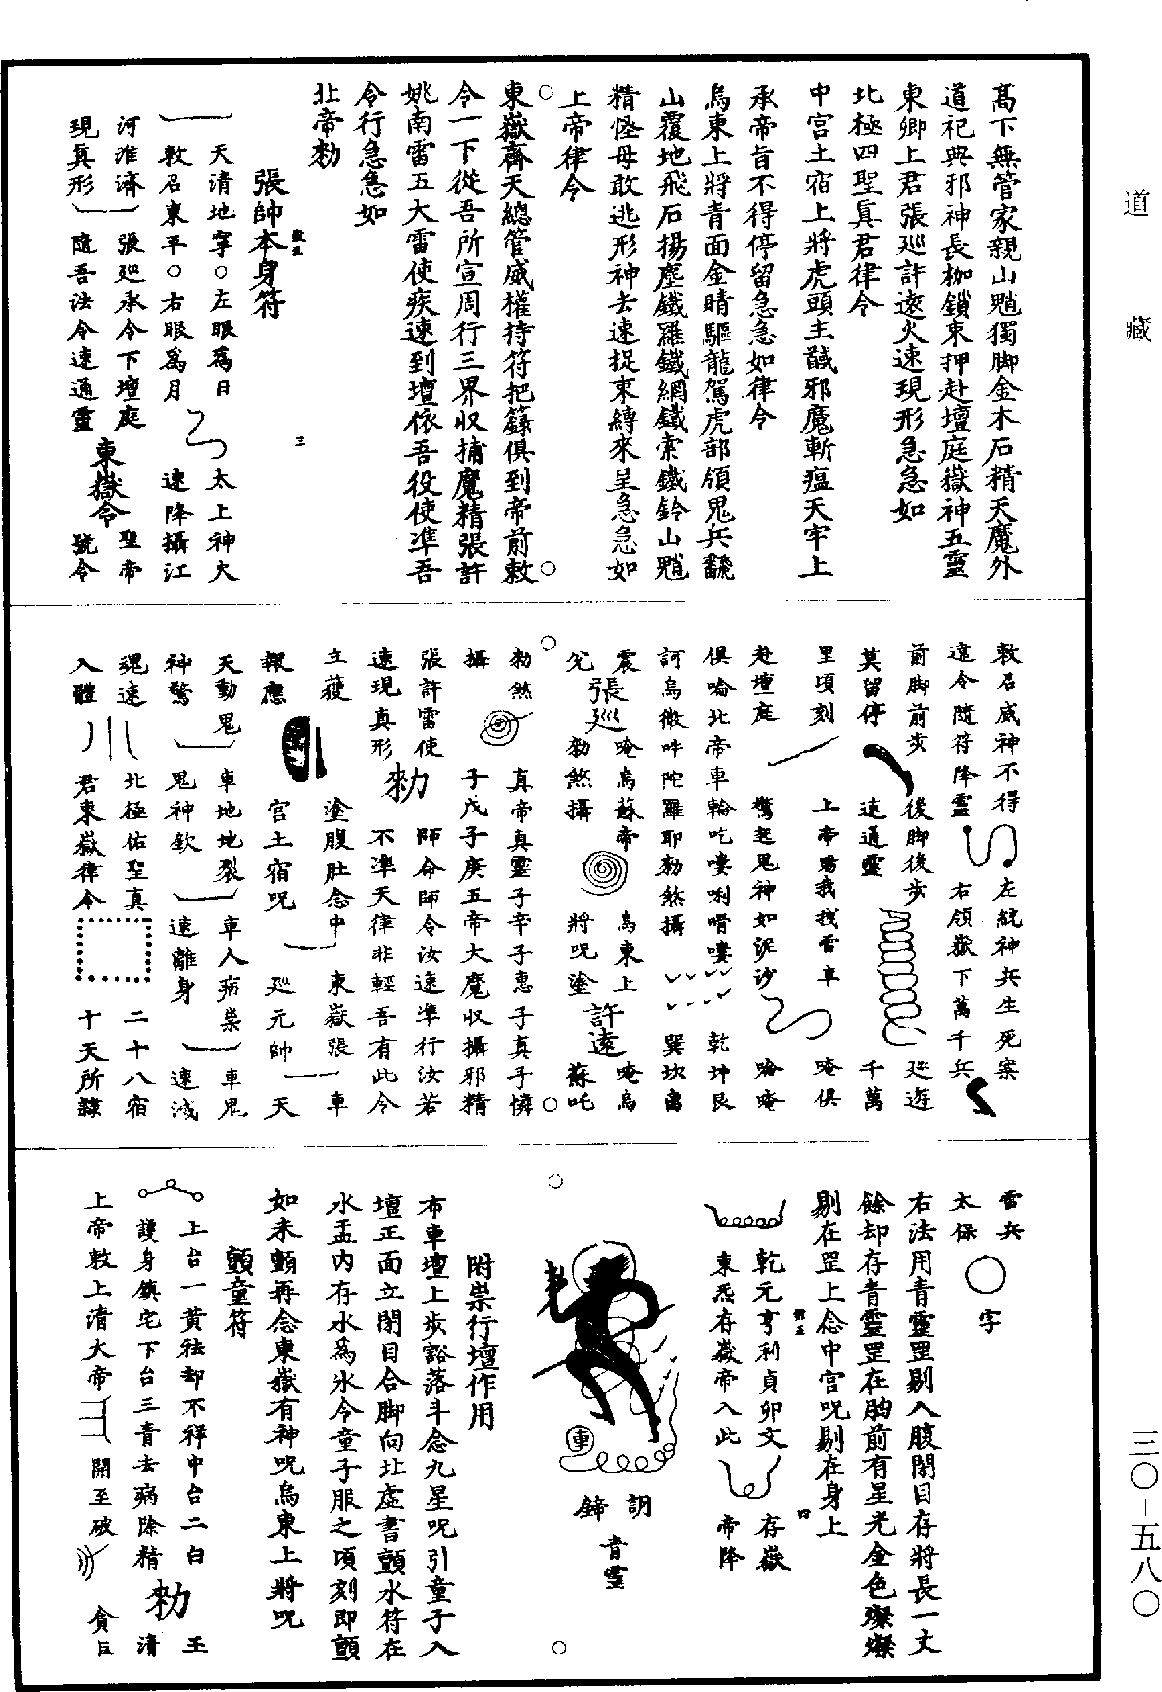 道藏
高下無管家親山魈獨脚金木石精天魔外
道祀典邪神長枷鎖束押赴壇庭嶽神五靈
東卿上君張巡許遠火速現形急急如
北極四聖真君律令
中宮土宿上將虎頭主馘邪魔斬瘟天牢上
承帝旨不得停留急急如律令
烏東上將青面金睛驅龍駕虎部領鬼兵翻
山覆地飛石揚塵鐵羅鐵網鐵索鐵鈴山魈
精怪毋敢逃形神去速捉束縛來呈急急如
上帝律令
東嶽齊天總管威權持符把籙俱到帝前敕
令一下從吾所宣周行三界收捕魔精張許
姚南雷五大雷使疾速到壇依吾役使準吾
令行急急如
北帝勑
張帥本身符
三
天清地寧○左眼為日
太上神火
敕召東平○右眼為月
速降攝江
河淮濟
張巡承令下壇庭
聖帝
現真形
隨吾法令速通靈
號令
東嶽令
敕召威神不得
左統神兵生死案
遠令隨符降靈
右領嶽下萬千兵
前脚前步
後脚後步
巡遊
莫留停
速通靈
千萬
里頃刻
上帝賜我找雷車
唵俱
赴壇庭
驚起鬼神如泥沙
唅唵
俱唅北帝車輪吃嘍唎嚼嘍
乾坤艮
訶烏微吽陀羅耶勑煞攝
巽坎離
震
張巡
唵烏蘇帝
烏東上
唵烏
兌
勑煞攝
將呪塗
許遠
蘇吒
勑煞
真帝真靈子辛子惠子真子憐
攝
子戊子庚五帝大魔收攝邪精
張許雷使
師命師令汝速準行汝若
速現真形
勑
不準天律非輕吾有此令
立獲
塗腹肚念中
東嶽張
車
報應
宮土宿呪
巡元帥
天
天動鬼
車地地裂
車人病祟
車鬼
神驚
鬼神欽
速離身
速滅
魂速
北極佑聖真
二十八宿
入體
君東嶽律令
十天所隸
雷兵
太保
字
右法用青靈罡剔入腹閉目存將長一丈
餘却存青靈罡在胸前有星光金色燦燦
剔在罡上念中宮呪剔在身上
乾元亨利貞卯文
存嶽
東炁存嶽帝入此
帝降
四
車
䚯
鍗
青靈
附祟行壇作用
布車壇上步豁落斗念九星呪引童子入
壇正面立閉目合脚向北虛書顫水符在
水盂內存水為氷令童子服之頃刻即顫
如未顫再念東嶽有神呪烏東上將呪
顫童符
上台一黃祛却不祥中台二白
玉
護身鎮宅下台三青去病除精
勑
清
上帝敕上清大帝
開至破
貪巨
三〇—五八〇